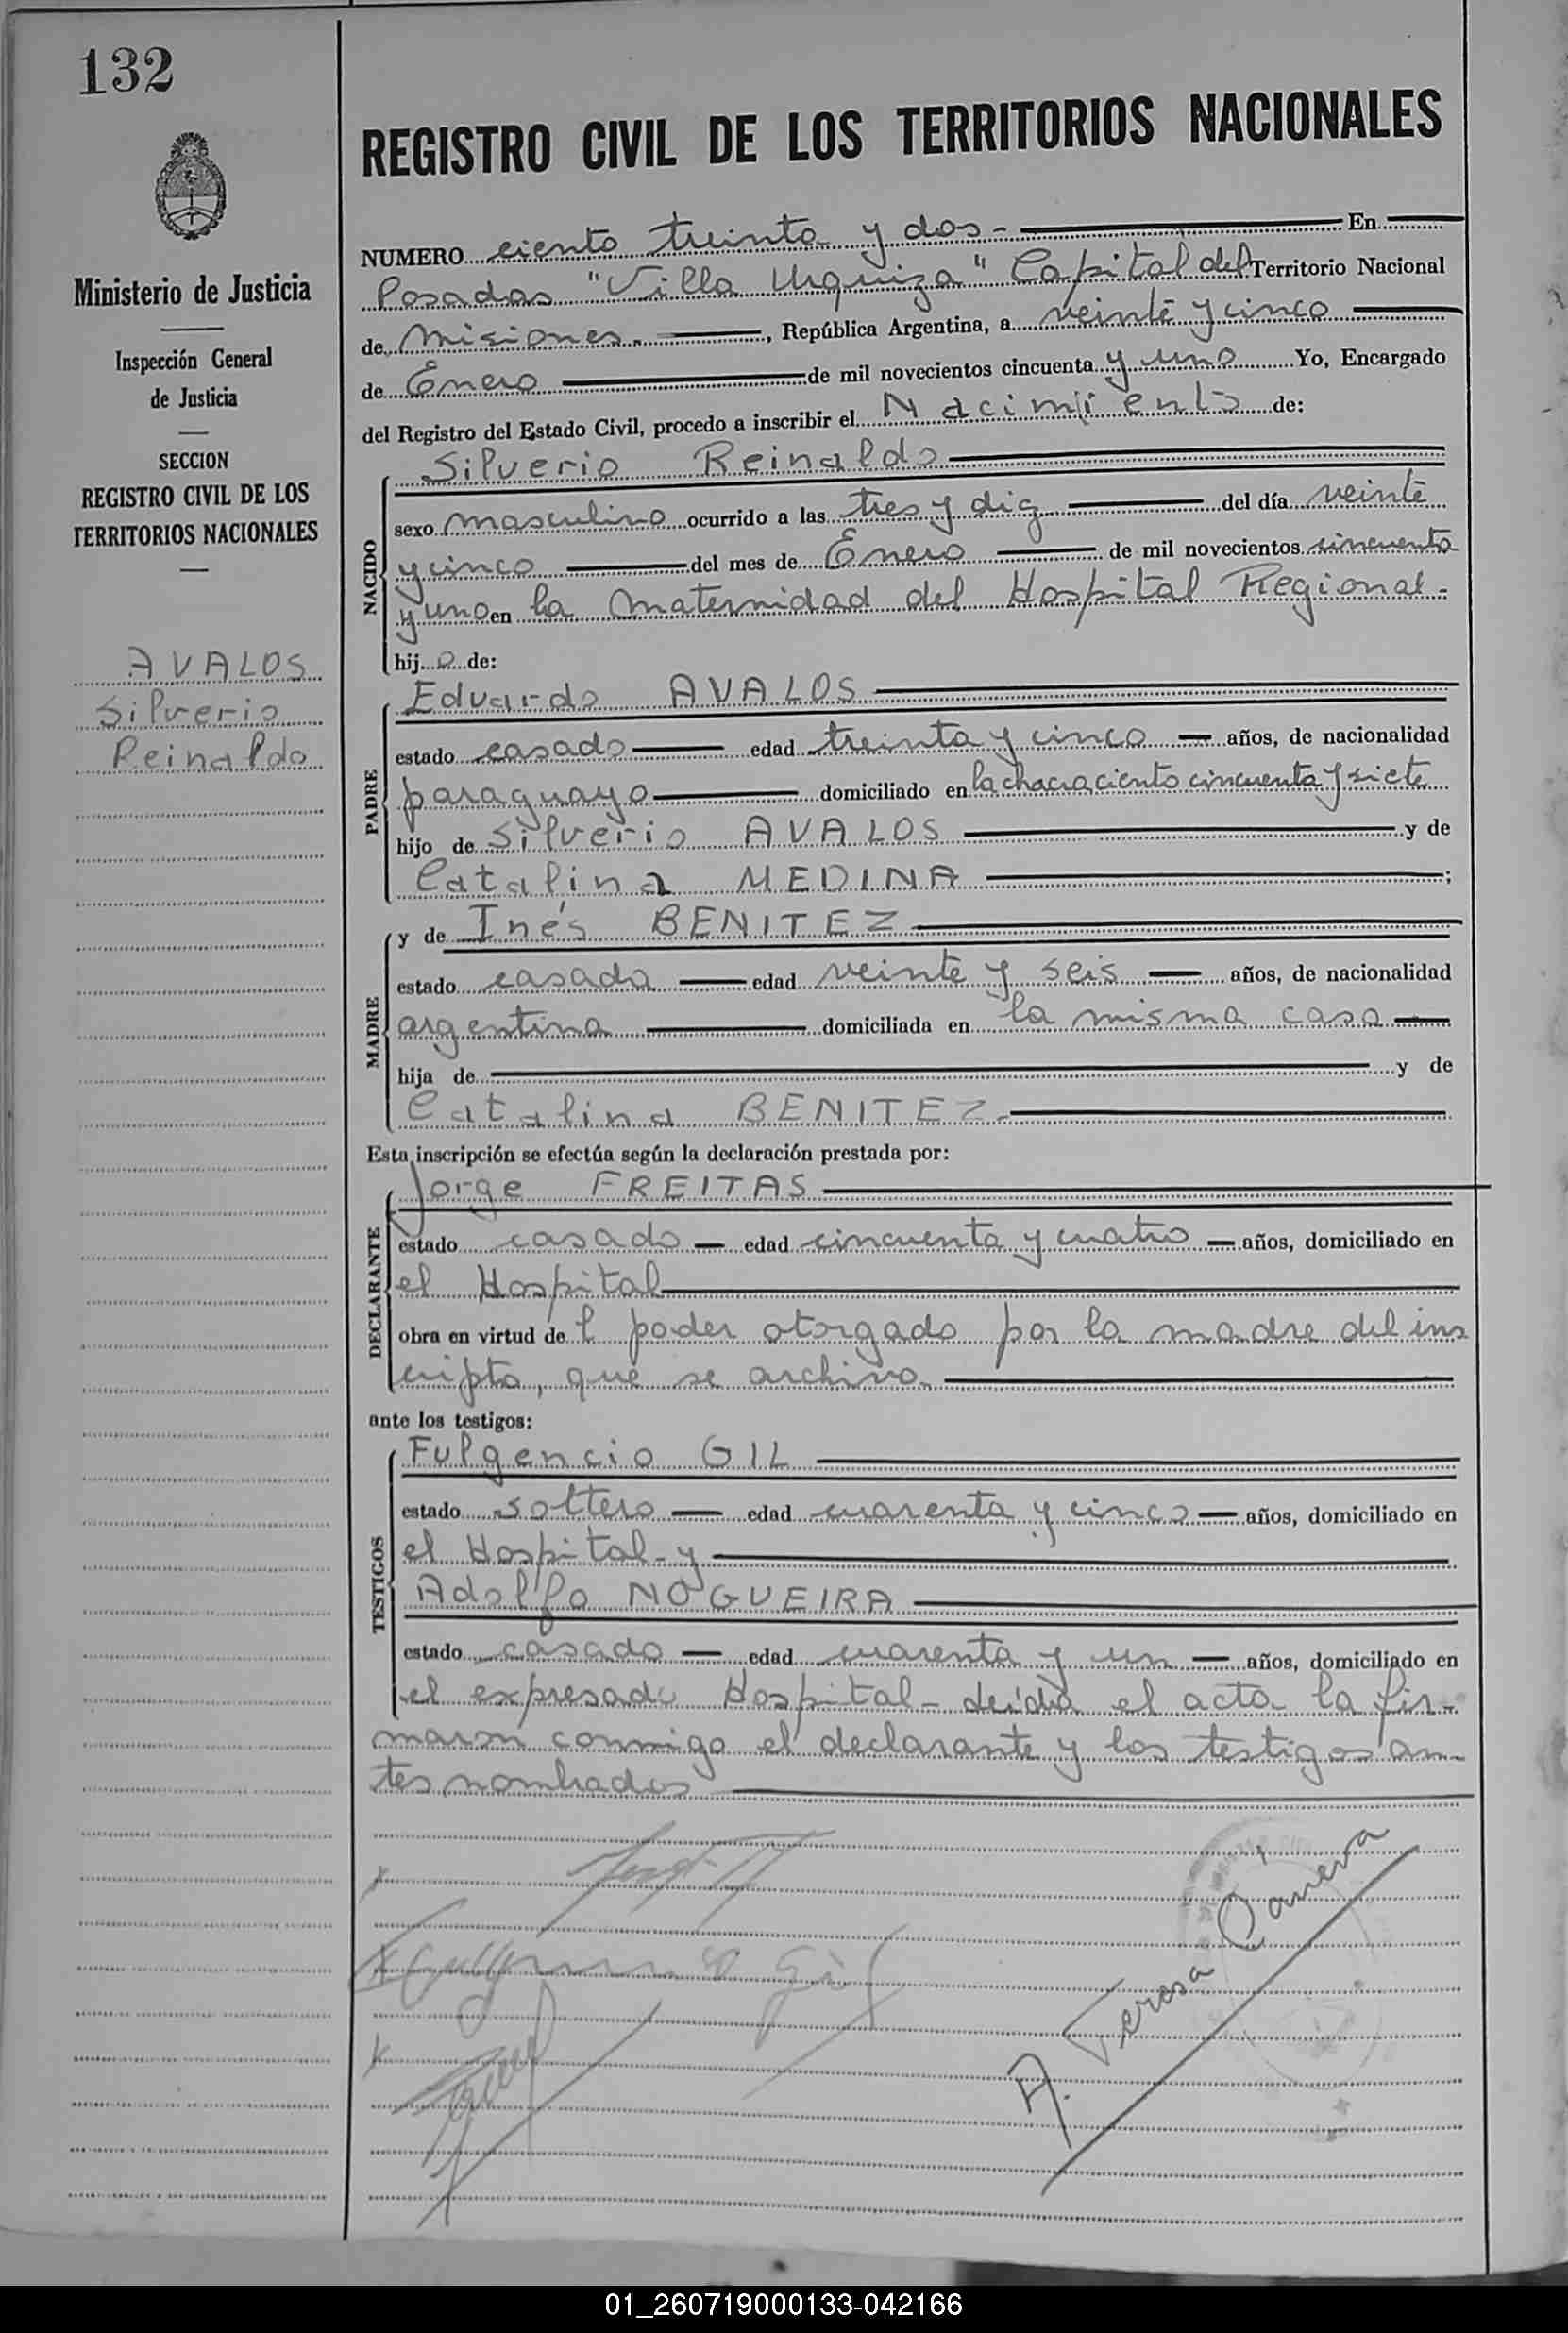 132
REGISTRO CIVIL DE LOS TERRITORIOS NACIONALES
Ministerio de Justicia
Inspección General
de Justicia
SECCION
REGISTRO CIVIL DE LOS
TERRITORIOS NACIONALES
AVALOS
Silverio
Reinaldo
NUMERO ciento treinta y dos - En
Posadas "Villa Urquiza" Capital del Territorio Nacional
de Misiones. , República Argentina, a veinte y cinco
de Enero de mil novecientos cincuenta y uno Yo, Encargado
del Registro del Estado Civil, procedo a inscribir el Nacimiento de:
NACIDO
Silverio Reinaldo
sexo masculino ocurrido a las tres y diz del día veinte
y cinco del mes de Enero de mil novecientos cincuenta
y uno en la Maternidad del Hospital Regional.
hijo de:
PADRE
Eduardo AVALOS
estado casado edad treinta y cinco años, de nacionalidad
paraguayo domiciliado en la chacra ciento cincuenta y siete
hijo de Silverio AVALOS y de
Catalina MEDINA ;
MADRE
y de Inés BENITEZ
estado casada edad veinte y seis años, de nacionalidad
argentina domiciliada en la misma casa
hija de y de
Catalina BENITEZ.
Esta inscripción se efectúa según la declaración prestada por:
DECLARANTE
Jorge FREITAS
estado casado edad cincuenta y cuatro años, domiciliado en
el Hospital
obra en virtud de l poder otorgado por la madre del ins
cripto, que se archiva.
ante los testigos:
TESTIGOS
Fulgencio GIL
estado soltero edad cuarenta y cinco años, domiciliado en
el Hospital - y
Adolfo NOGUEIRA
estado casado edad cuarenta y un años, domiciliado en
el expresado Hospital - leída el acta la fir-
maron conmigo el declarante y los testigos an-
tes nombrados
Gil
A. Teresa Cáneva
01_260719000133-042166